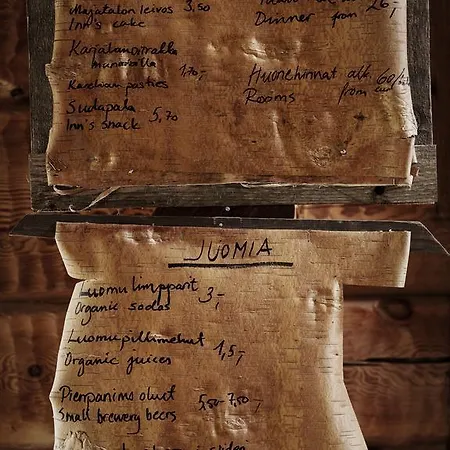 Majatalon leivos 3,50
Inn's cake
Dinner from 26,-
Karjalanpiirakka
munavoilla 1,70,-
Karelian pasties
Sudapala
Inn's snack 5,70
Huonehinnat alk. 60/
Rooms from
JUOMIA
Luomu limpparit 3,-
Organic sodas
Luomupillimehut 1,5,-
Organic juices
Pienpanimo oluet 5,50-7,50,-
Small brewery beers